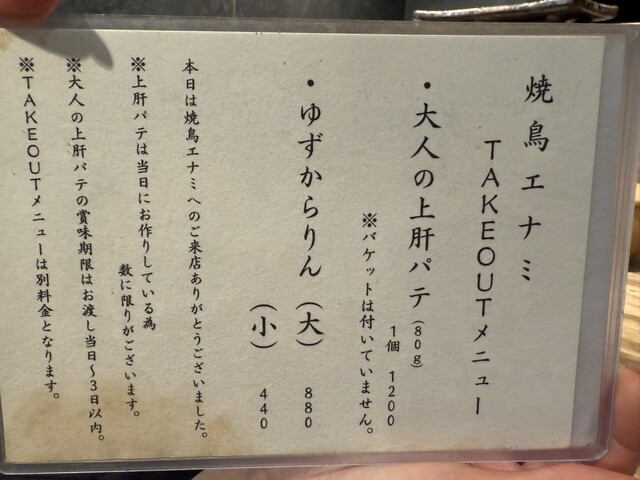 焼鳥エナミ
TAKEOUTメニュー
・大人の上肝パテ(80g)
1個 1200
※バケットは付いていません。
・ゆずからりん(大) 880
(小) 440
本日は焼鳥エナミへのご来店ありがとうございました。
※上肝パテは当日にお作りしている為
数に限りがございます。
※大人の上肝パテの賞味期限はお渡し当日~3日以内。
※TAKEOUTメニューは別料金となります。